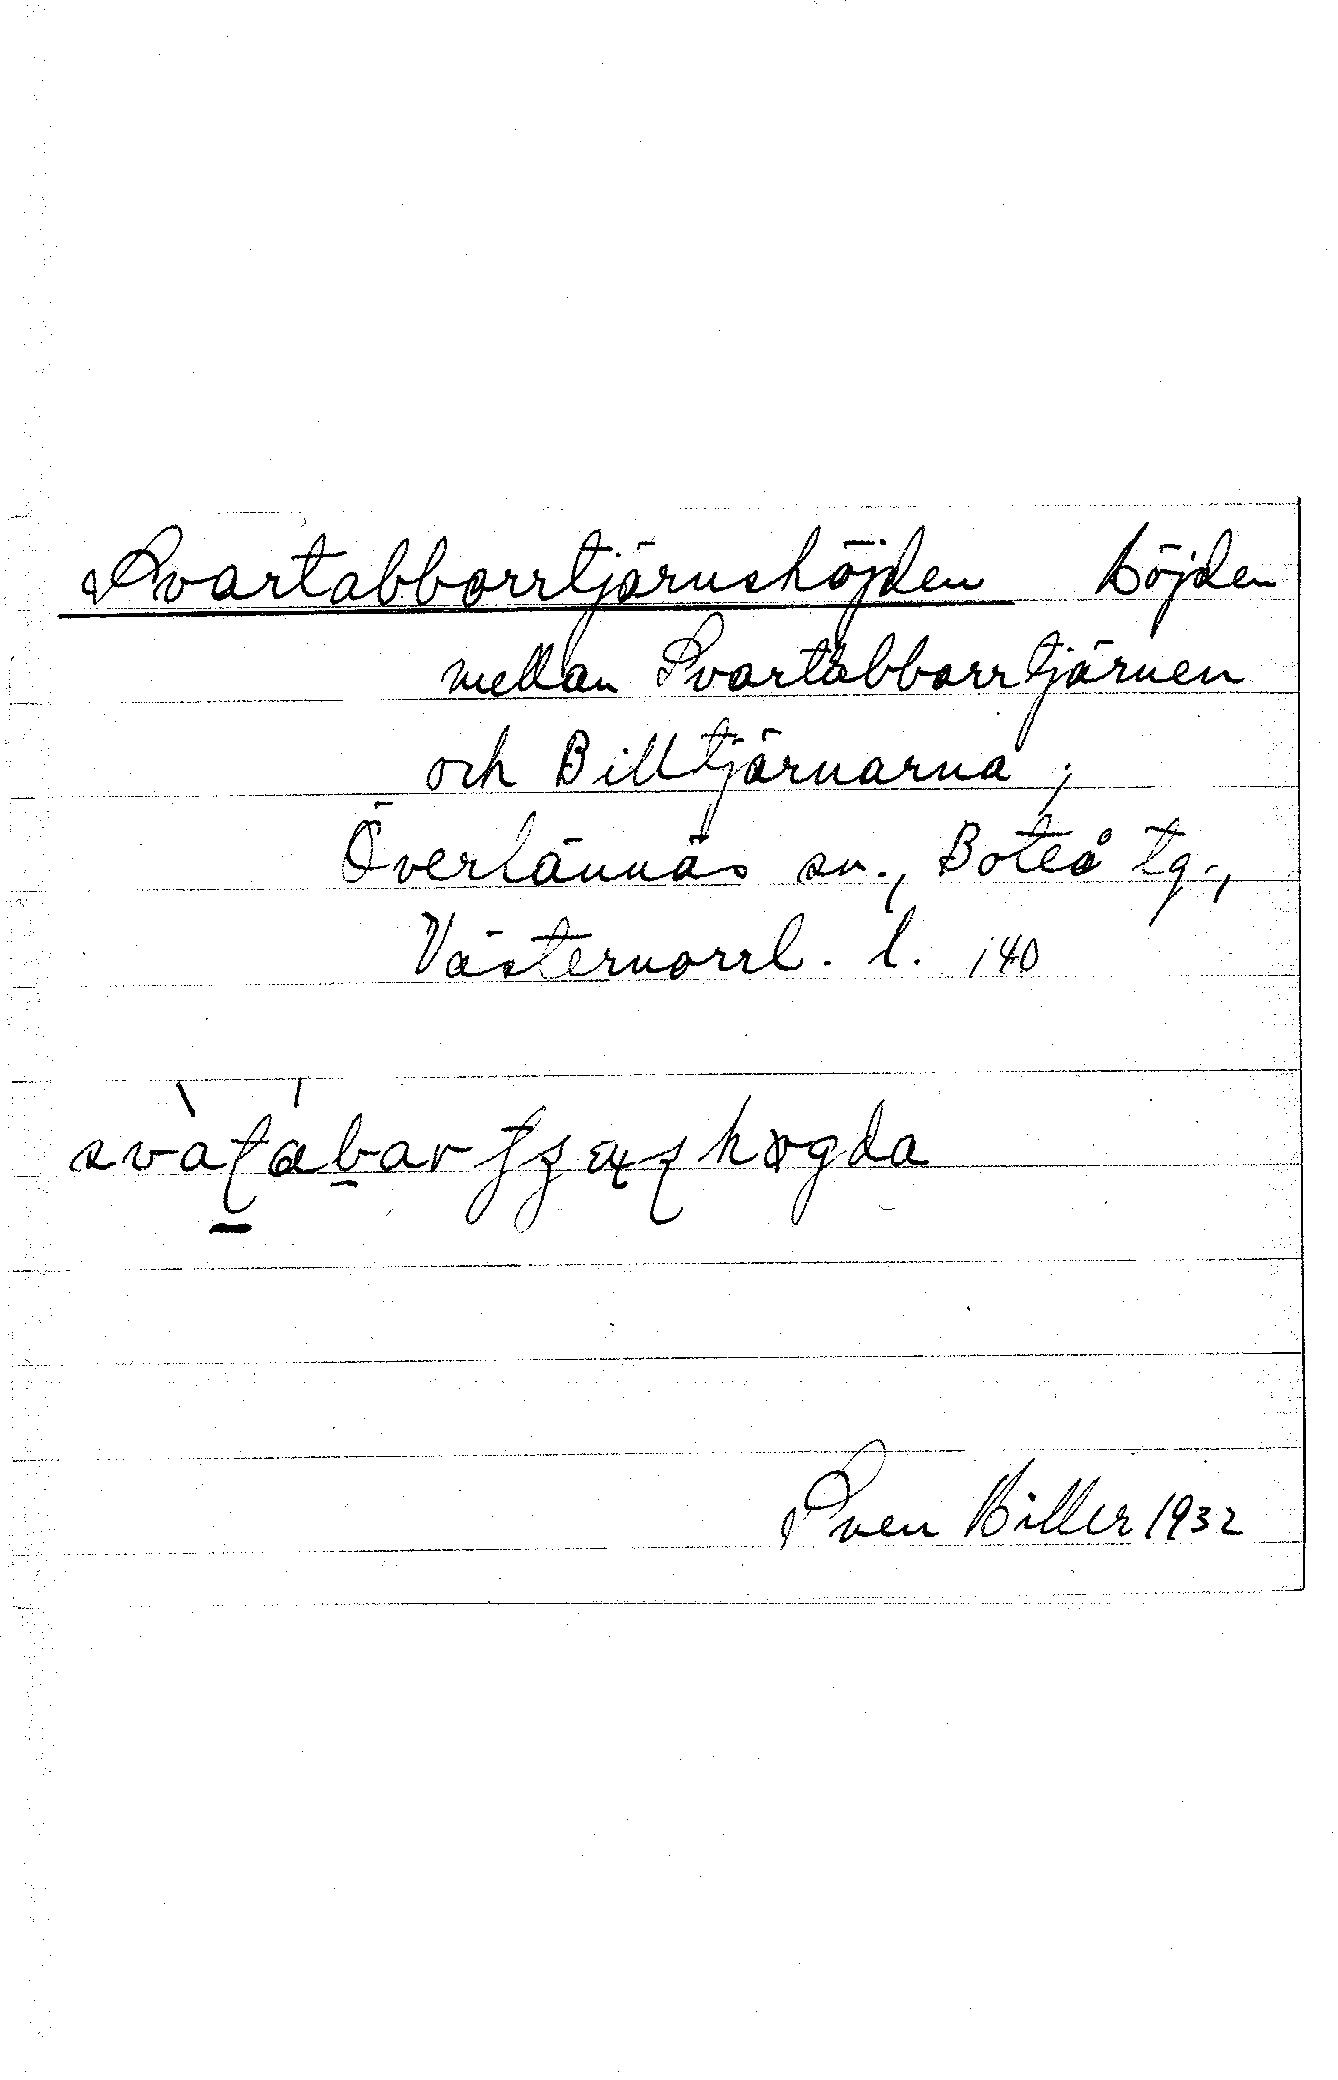 Svartabborrtjärnshöjden höjden
mellan Svartabborrtjärnen
och Billtjärnarna;
Överlännäs sn., Boteå tg.,
Västernorrl. l. 140
Sven Biller 1932